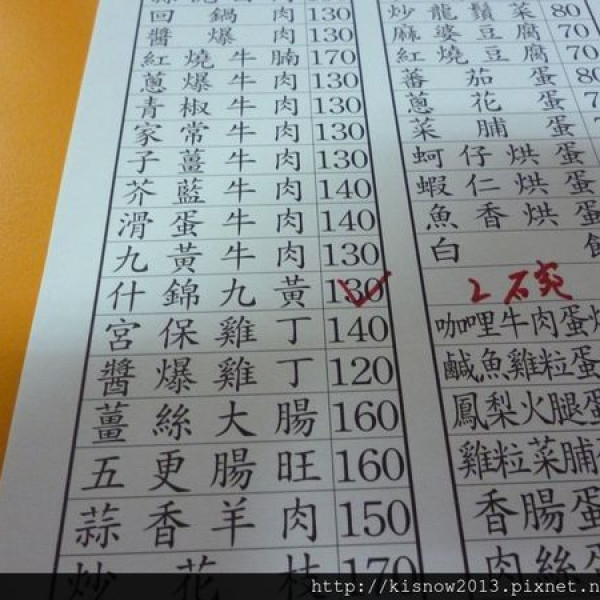 回鍋肉 130
醬爆肉 130
紅燒牛腩 170
蔥爆牛肉 130
青椒牛肉 130
家常牛肉 130
子薑牛肉 130
芥藍牛肉 140
滑蛋牛肉 140
九黃牛肉 130
什錦九黃 130
宮保雞丁 140
醬爆雞丁 120
薑絲大腸 160
五更腸旺 160
蒜香羊肉 150
炒花枝 170
炒龍鬚菜 80
麻婆豆腐 70
紅燒豆腐 70
蕃茄蛋 80
蔥花蛋
菜脯蛋
蚵仔烘蛋
蝦仁烘蛋
魚香烘蛋
白
2
咖哩牛肉蛋
鹹魚雞粒蛋
鳳梨火腿蛋
雞粒菜脯
香腸蛋
肉絲蛋
http://kisnow2013.pixnet.n